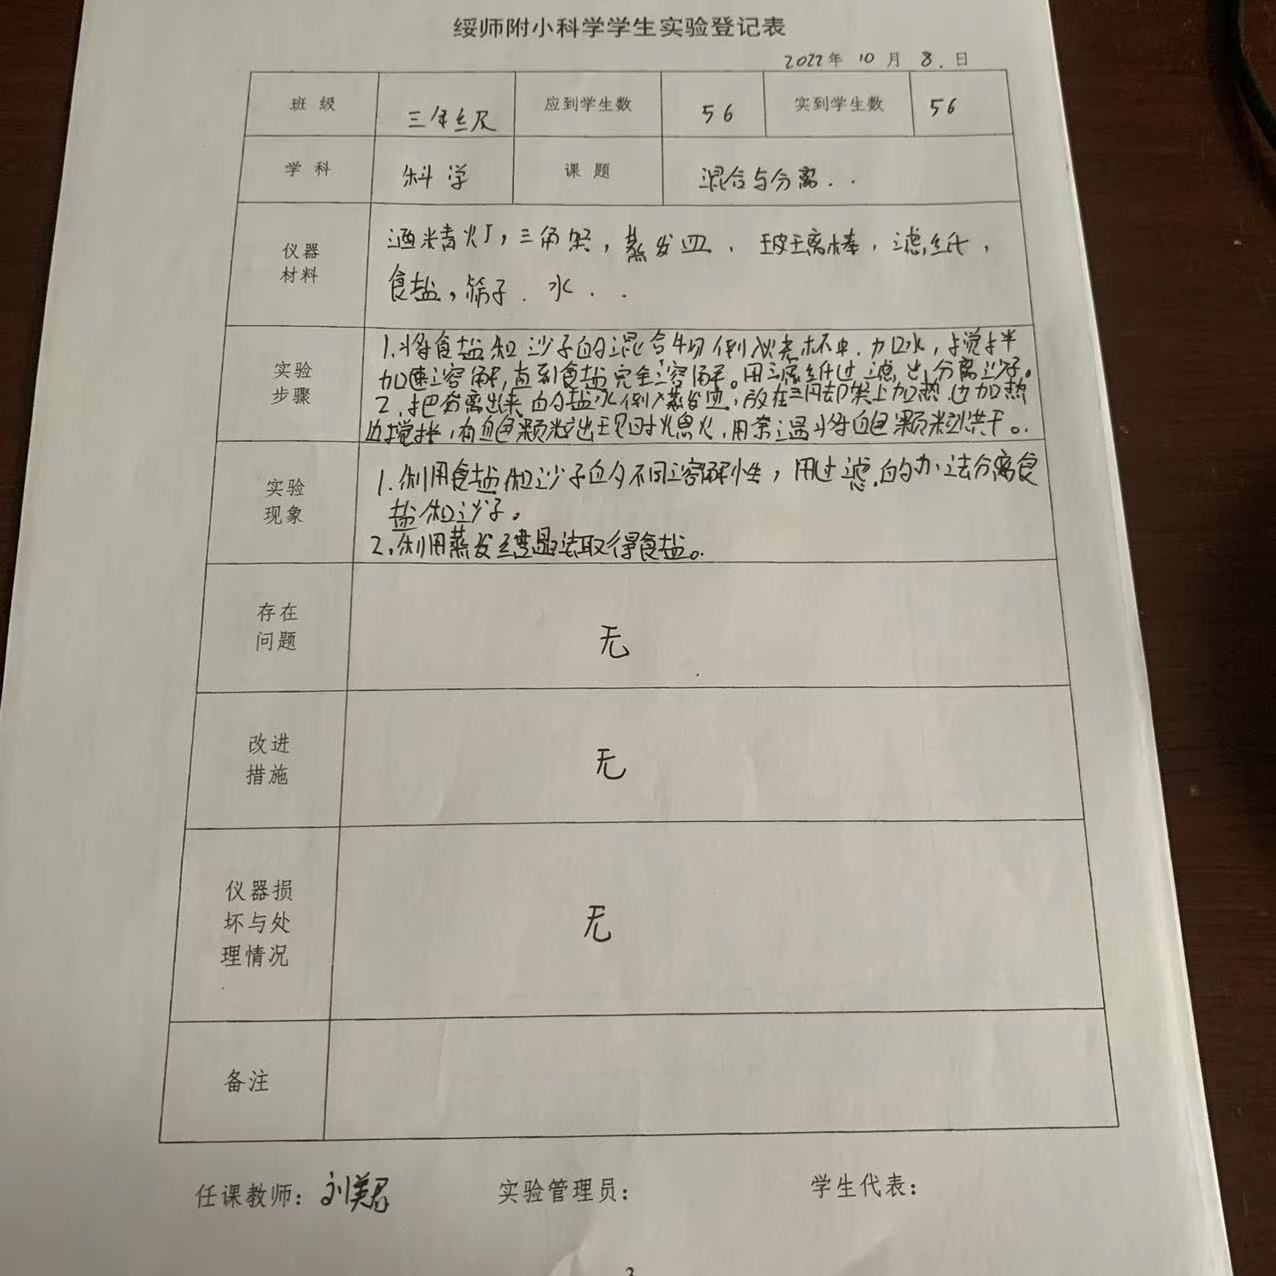 绥师附小科学学生实验登记表
2022年 10 月 8. 日
班 级 三年级 应到学生数 56 实到学生数 56
学 科 科学 课 题 混合与分离..
仪器
材料
酒精灯,三角架,蒸发皿、玻璃棒,滤纸,
食盐,筛子.水..
实验
步骤
1.将食盐和沙子的混合物倒入烧杯中.加水,搅拌
加速溶解,直到食盐完全溶解。用滤纸过滤出,分离沙子。
2.把分离出来的盐水倒入蒸发皿,放在三角架上加热边加热
边搅拌,有白色颗粒出现时熄火,用余温将白色颗粒烘干。
实验
现象
1.利用食盐和沙子的不同溶解性,用过滤的办法分离食
盐和沙子。
2.利用蒸发结晶法取得食盐。
存在
问题
无
改进
措施
无
仪器损
坏与处
理情况
无
备注
任课教师: 刘美 实验管理员: 学生代表: